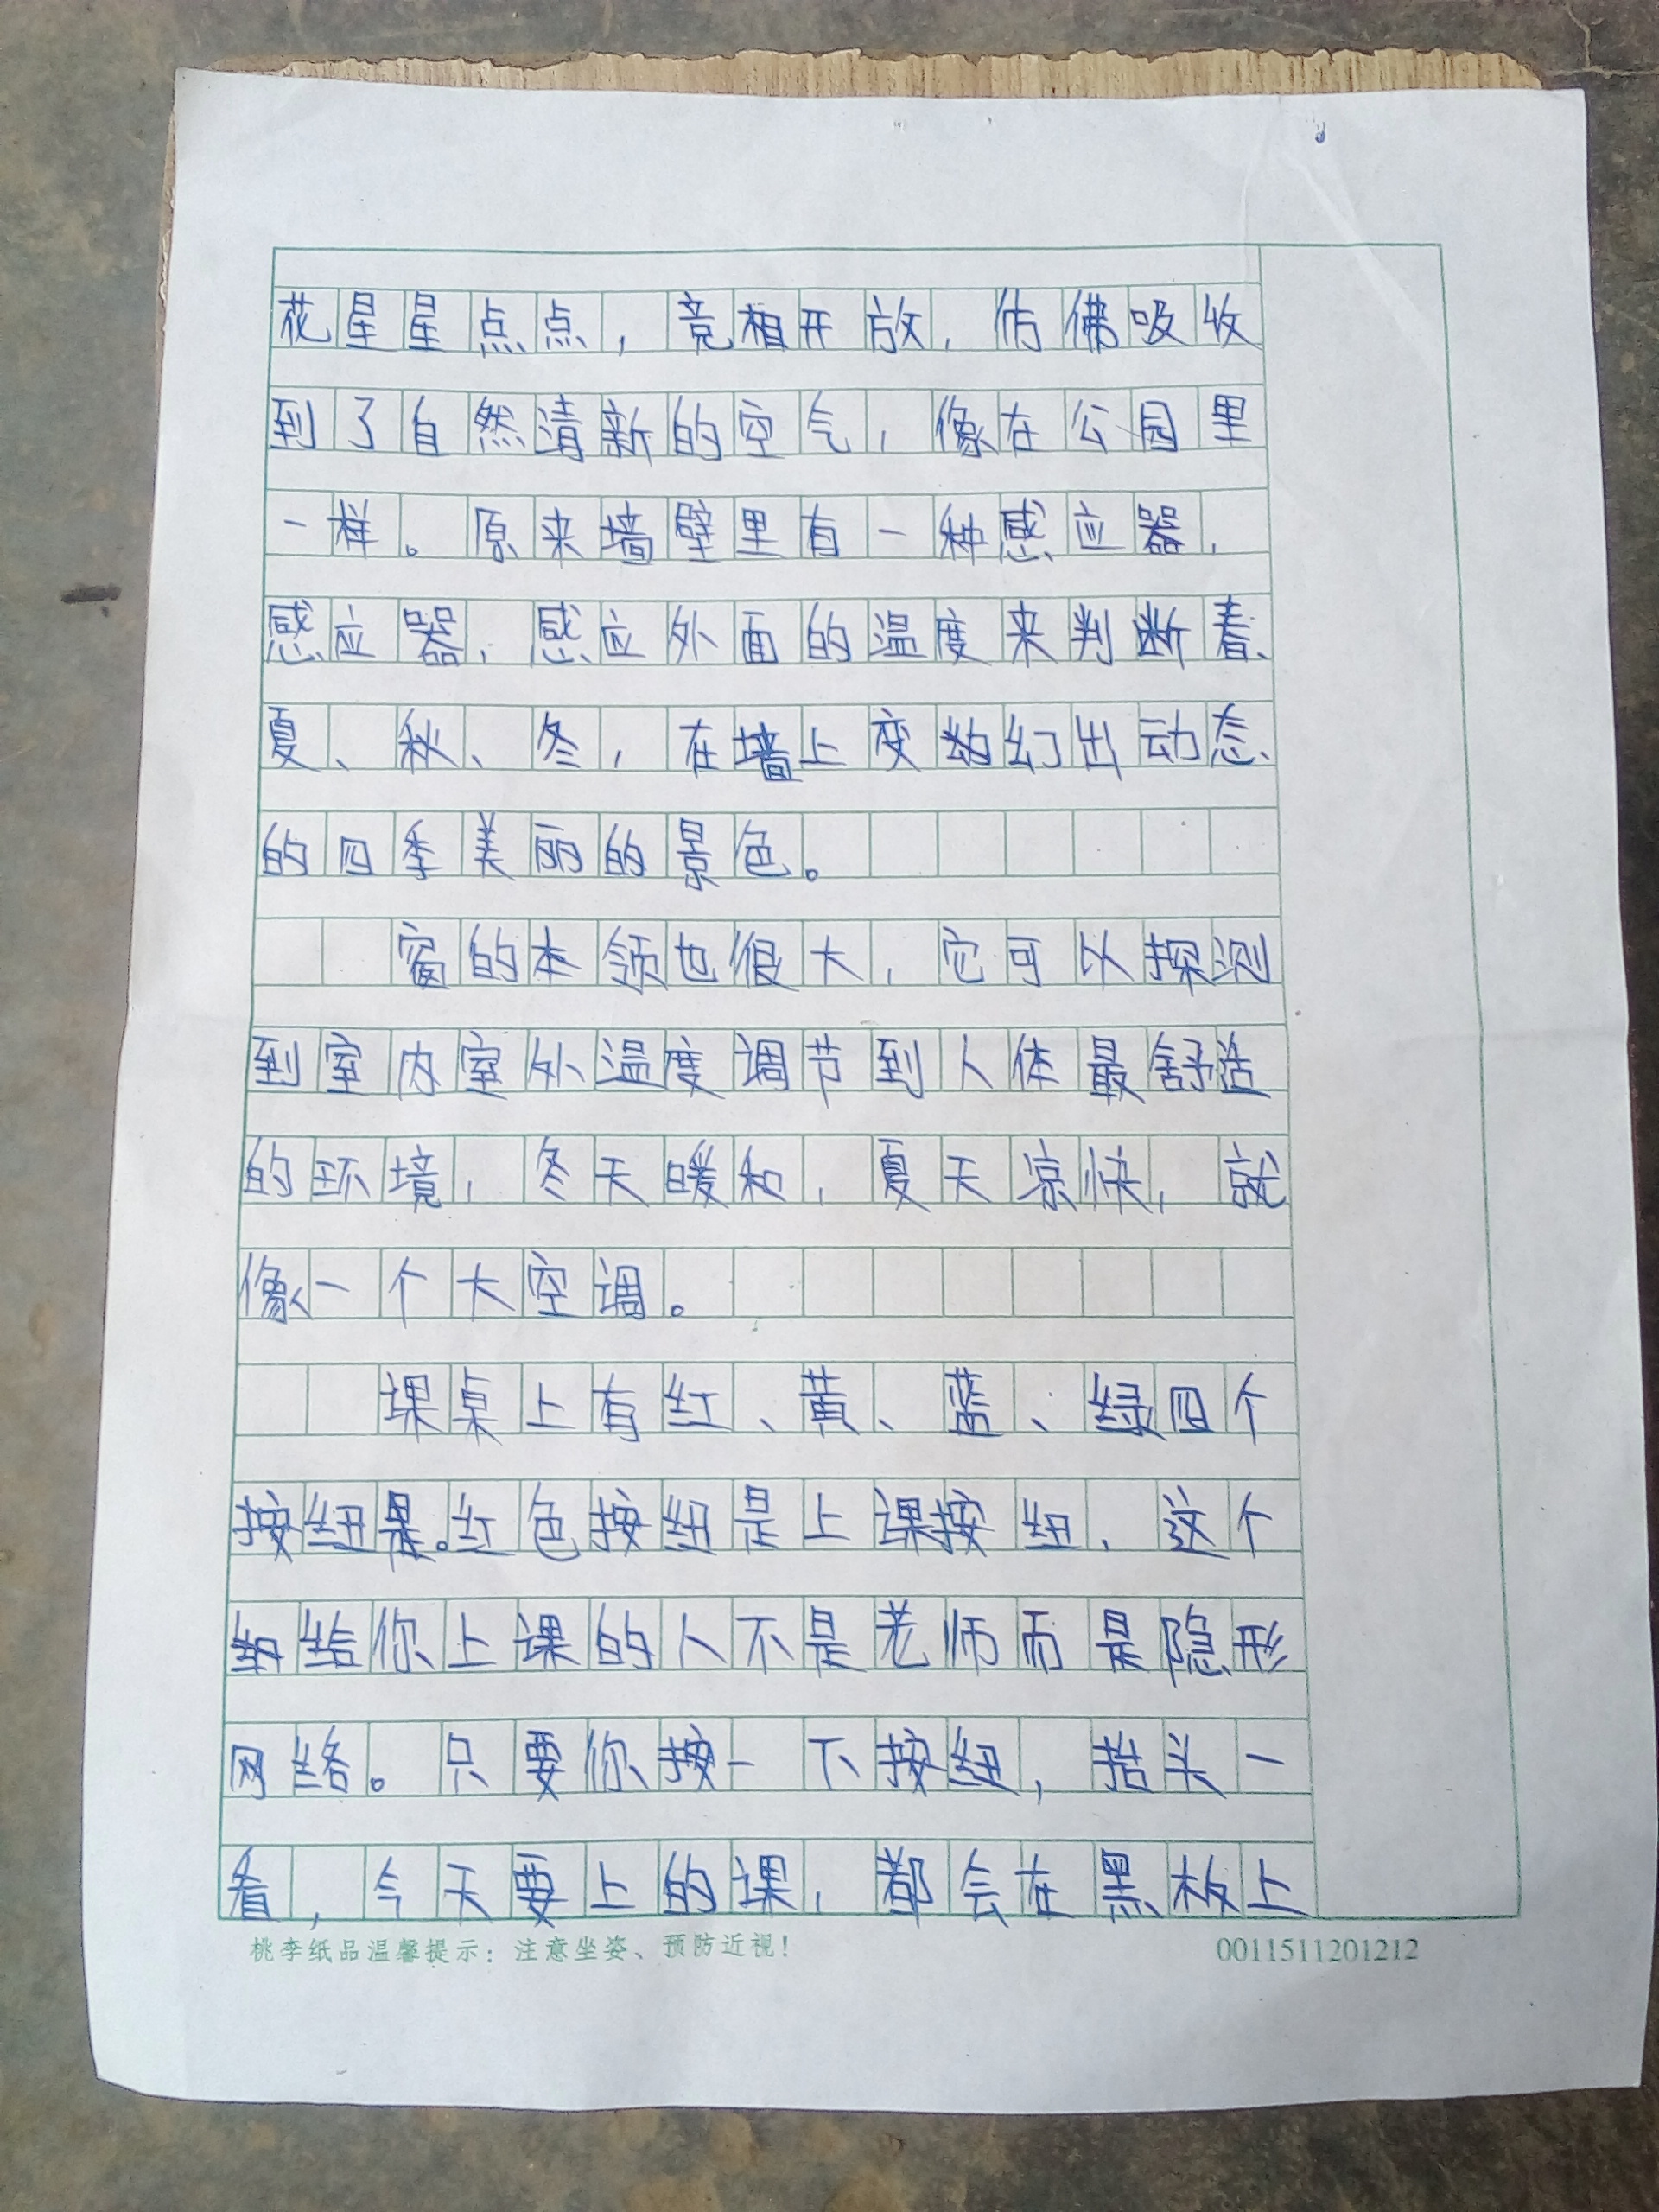 花星星点点，竞相开放，仿佛吸收
到了自然清新的空气，像在公园里
一样。原来墙壁里有一种感应器，
感应器，感应外面的温度来判断春、
夏、秋、冬，在墙上变幻出动态、
的四季美丽的景色。
窗的本领也很大，它可以探测
到室内室外温度调节到人体最舒适
的环境，冬天暖和，夏天凉快，就
像一个大空调。
课桌上有红、黄、蓝、绿四个
按纽。红色按纽是上课按纽，这个
给你上课的人不是老师而是隐形
网络。只要你按一下按纽，抬头一
看，今天要上的课，都会在黑板上
桃李纸品温馨提示：注意坐姿、预防近视！
0011511201212